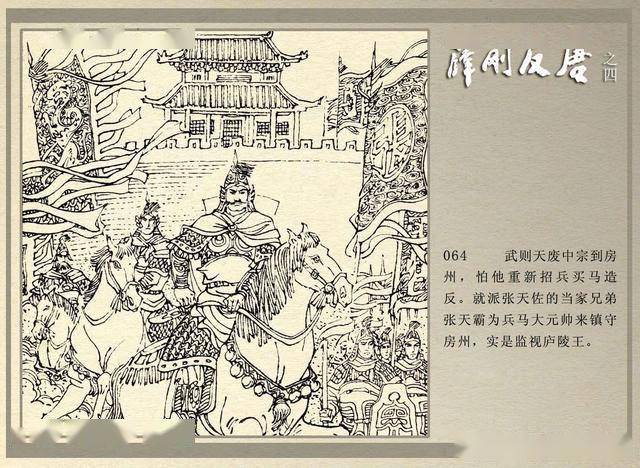 薛刚反唐
之四
064 武则天废中宗到房
州，怕他重新招兵买马造
反。就派张天佐的当家兄弟
张天霸为兵马大元帅来镇守
房州，实是监视庐陵王。